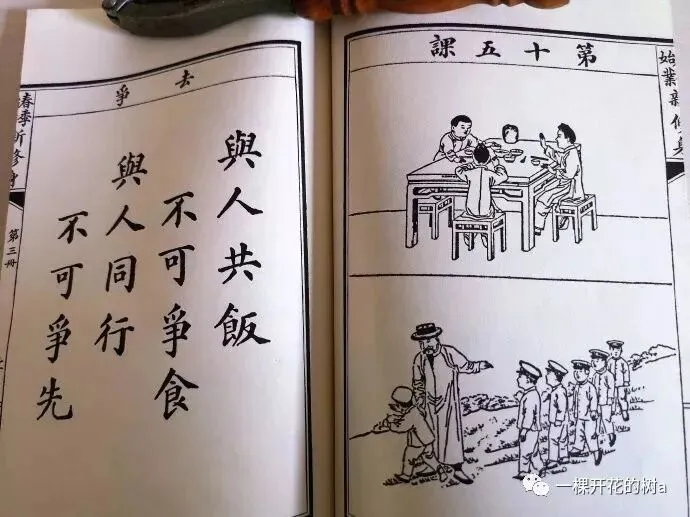 第十五課
始業新修身
去爭
與人共飯
不可爭食
與人同行
不可爭先
春季新修身
第三冊
一棵开花的树a